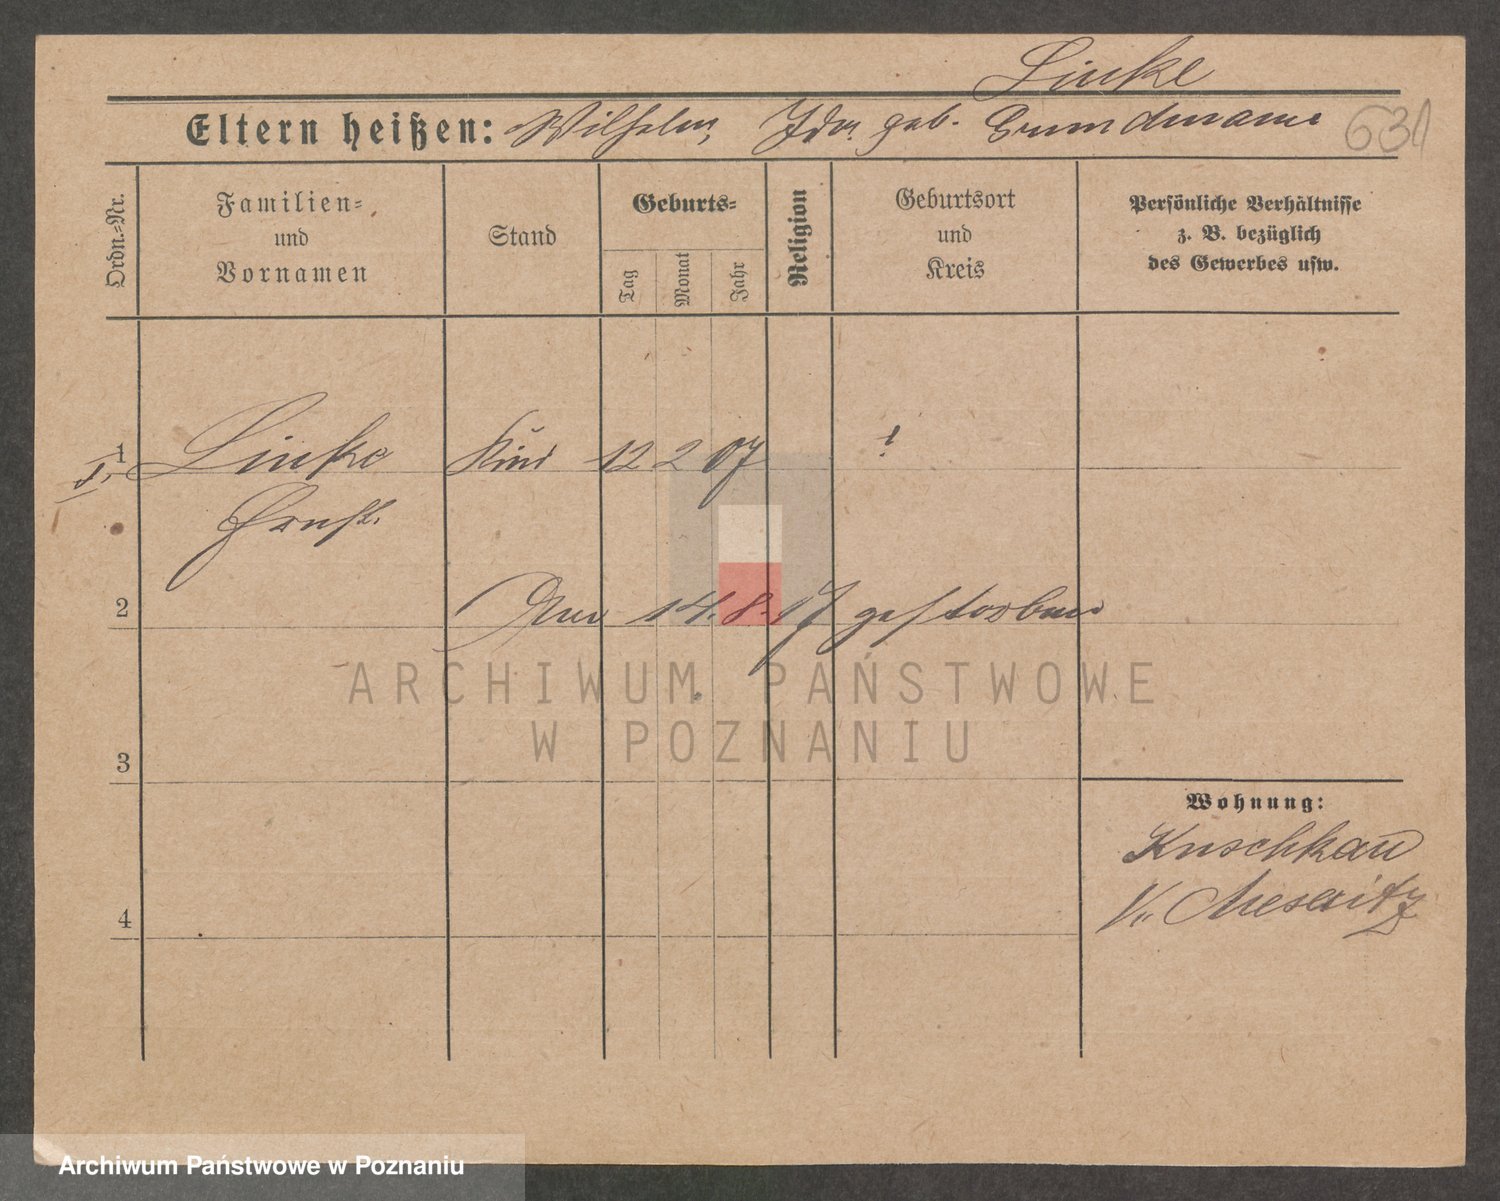 Linke
Eltern heißen: Wilhelm, Ida geb. Grundmann 631
Ordn.=Nr.
Familien=
und
Vornamen
Stand
Geburts=
Tag
Monat
Jahr
Religion
Geburtsort
und
Kreis
Persönliche Verhältnisse
z. B. bezüglich
des Gewerbes usw.
1 Linke Kind 12 2 07
Ernst.
2 14.8.17 gestorben
ARCHIWUM PAŃSTWOWE
W POZNANIU
3
Wohnung:
Kuschkau
Meseritz
4
Archiwum Państwowe w Poznaniu